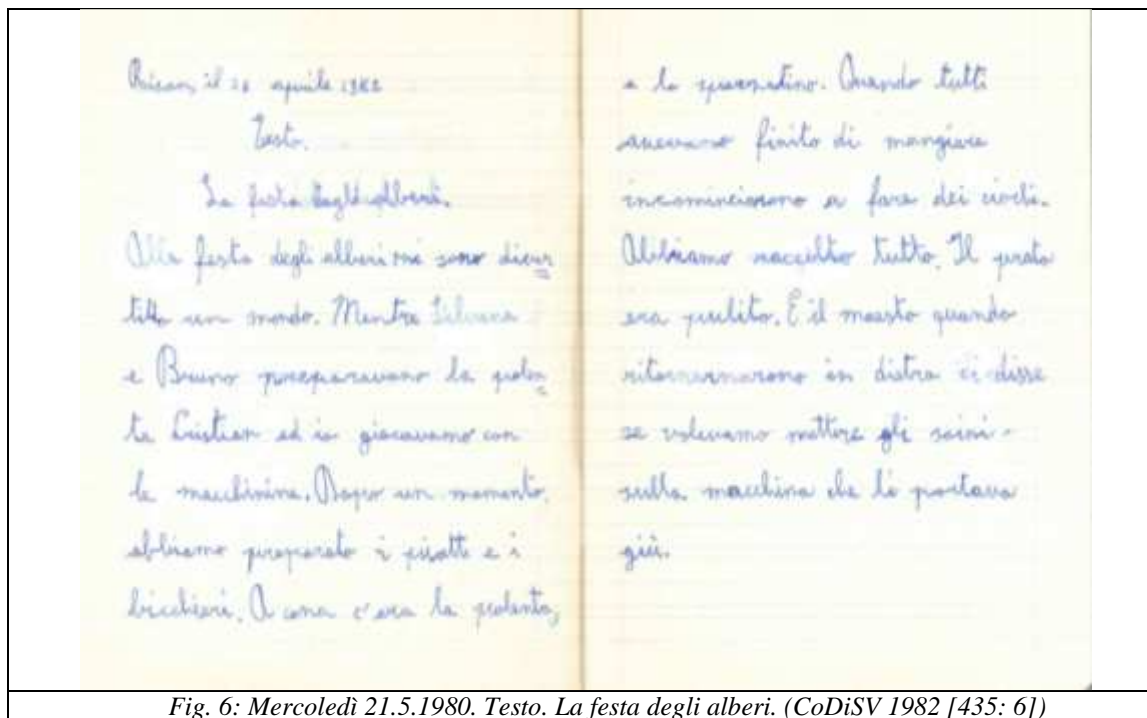 il aprile 1982
Testo.
La festa degli alberi.
Alla festa degli alberi mi sono diver
tito un mondo. Mentre Silvana
e Bruno preparavano la polen
ta Cristian ed io giocavamo con
le macchinine. Dopo un momento,
abbiamo preparato i piatti e i
bicchieri. A cena c'era la polenta,
e lo Quando tutti
avevano finito di mangiare
incominciarono a fare dei
Abbiamo raccolto tutto. Il prato
era pulito. E il maesto quando
ritornarnarono in dietro ci disse
se volevamo mettere gli
sulla macchina che li portava
giù.
Fig. 6: Mercoledì 21.5.1980. Testo. La festa degli alberi. (CoDiSV 1982 [435: 6])